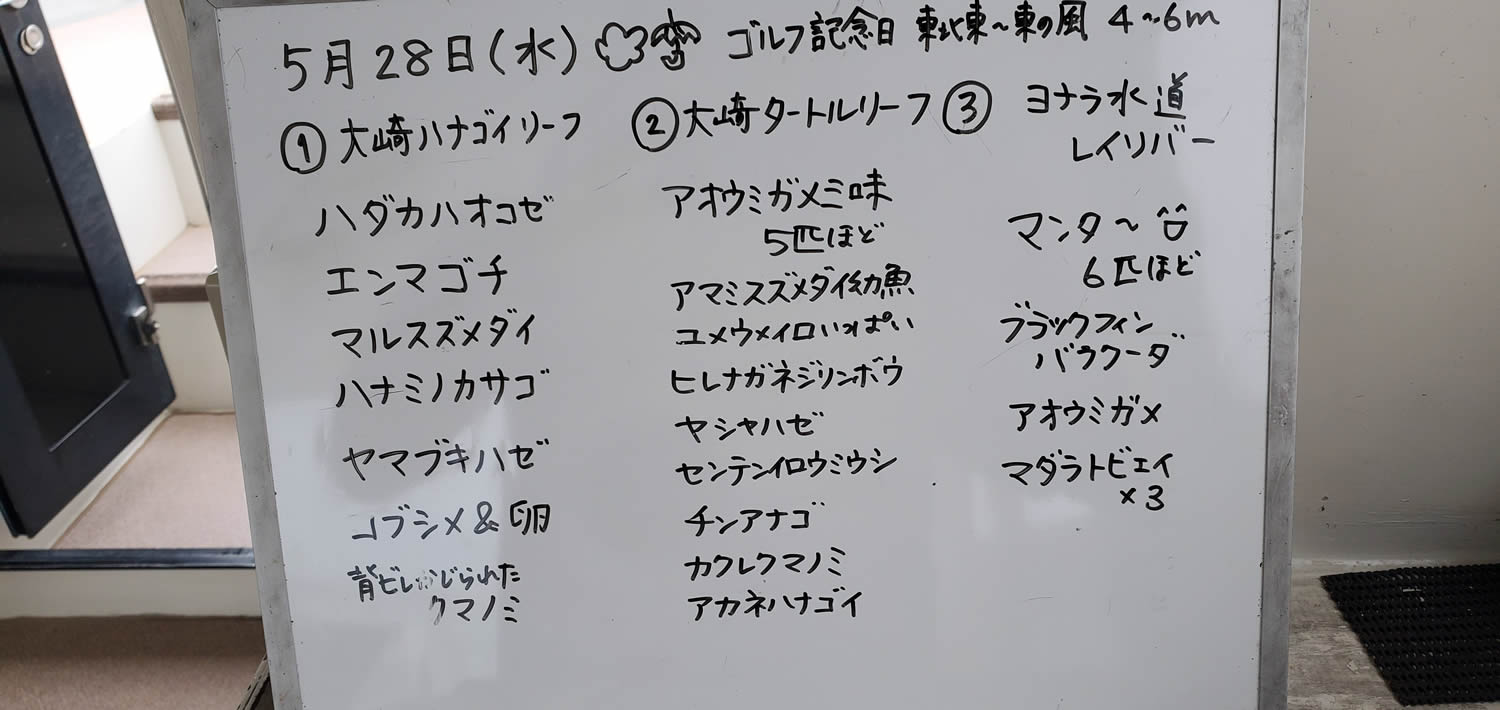 5月28日(水) ゴルフ記念日 東北東～東の風 4～6m
① 大崎ハナゴイリーフ
ハダカハオコゼ
エンマゴチ
マルスズメダイ
ハナミノカサゴ
ヤマブキハゼ
コブシメ&卵
背ビレかじられた
クマノミ
② 大崎タートルリーフ
アオウミガメ三昧
5匹ほど
アマミスズメダイ幼魚
ユメウメイロいっぱい
ヒレナガネジリンボウ
ヤシャハゼ
センテンイロウミウシ
チンアナゴ
カクレクマノミ
アカネハナゴイ
③ ヨナラ水道
レイリバー
マンタ～
6匹ほど
ブラックフィン
バラクーダ
アオウミガメ
マダラトビエイ
×3